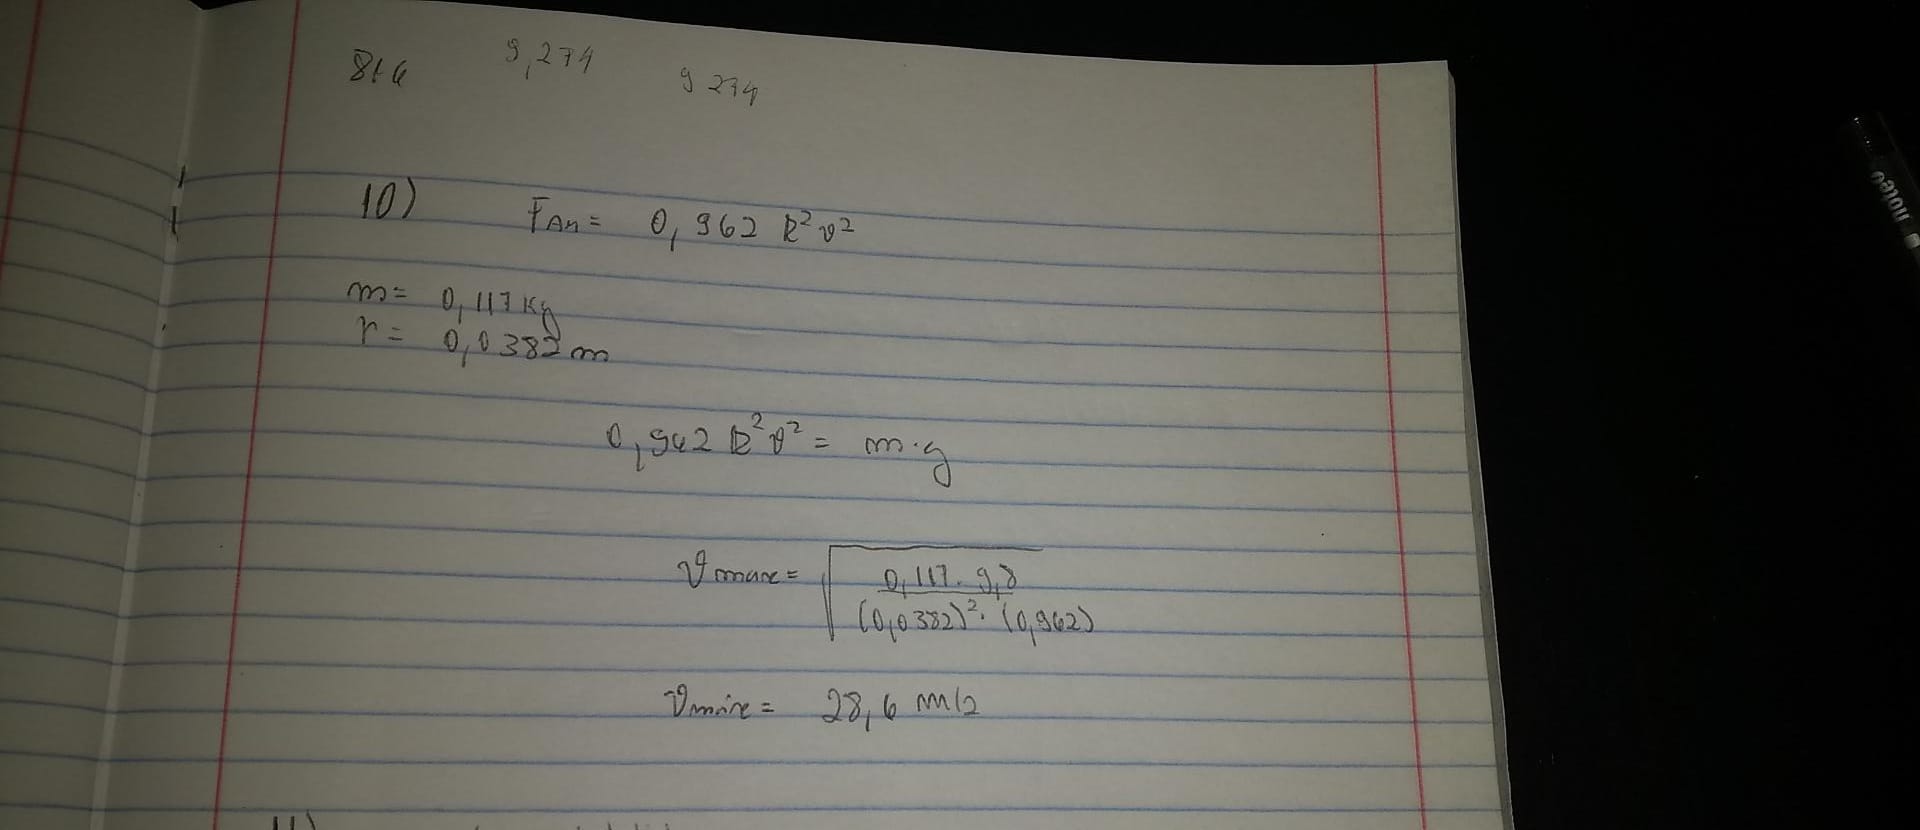 9,274
9 274
10) FAM = 0,962 R² v²
m = 0,117 Kg
r = 0,0382 m
0,962 R² v² = m·g
vmax = √ 0,117 · 9,8
(0,0382)² · (0,962)
vmáx = 28,6 m/s
noteo